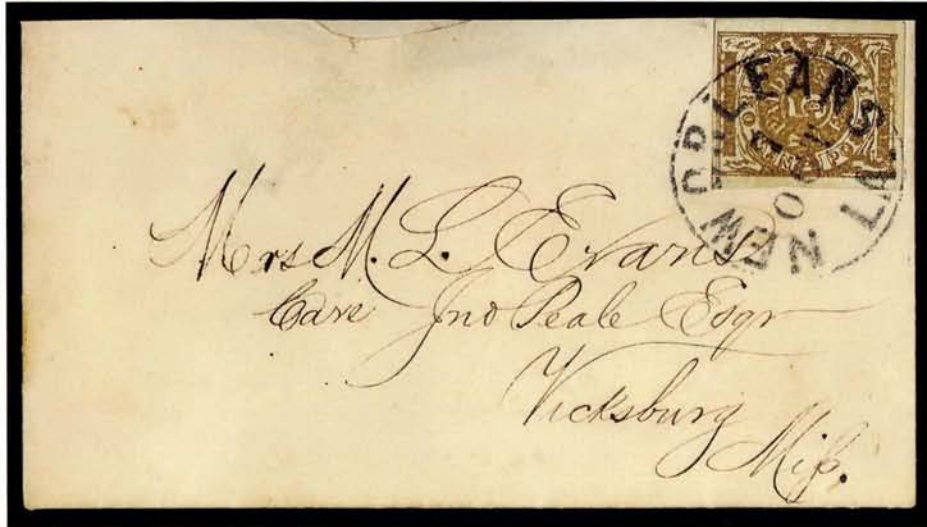 NEW ORLEANS LA.
Mrs M. L. Evans
Care Jno Peale Esqr
Vicksburg
Miſs.